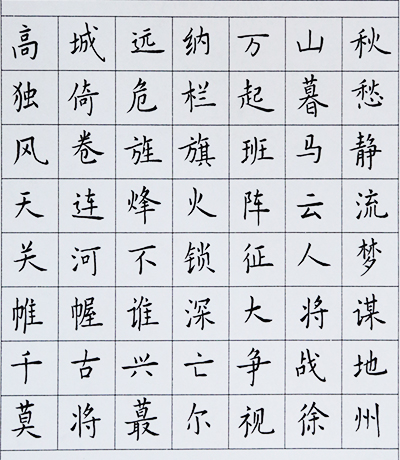 高城远纳万山秋
独倚危栏起暮愁
风卷旌旗班马静
天连烽火阵云流
关河不锁征人梦
帷幄谁深大将谋
千古兴亡争战地
莫将蕞尔视徐州